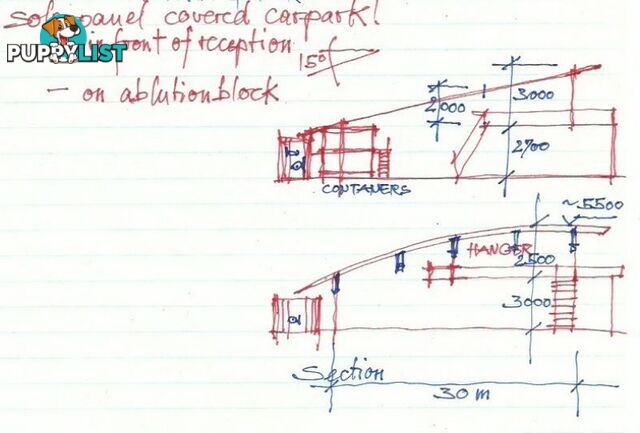 solar panel covered carpark!
in front of reception
PUPPYLIST
15°
- on ablution block
2,000
3000
2700
CONTANERS
~5500
HANGER
2500
3000
Section
30 m